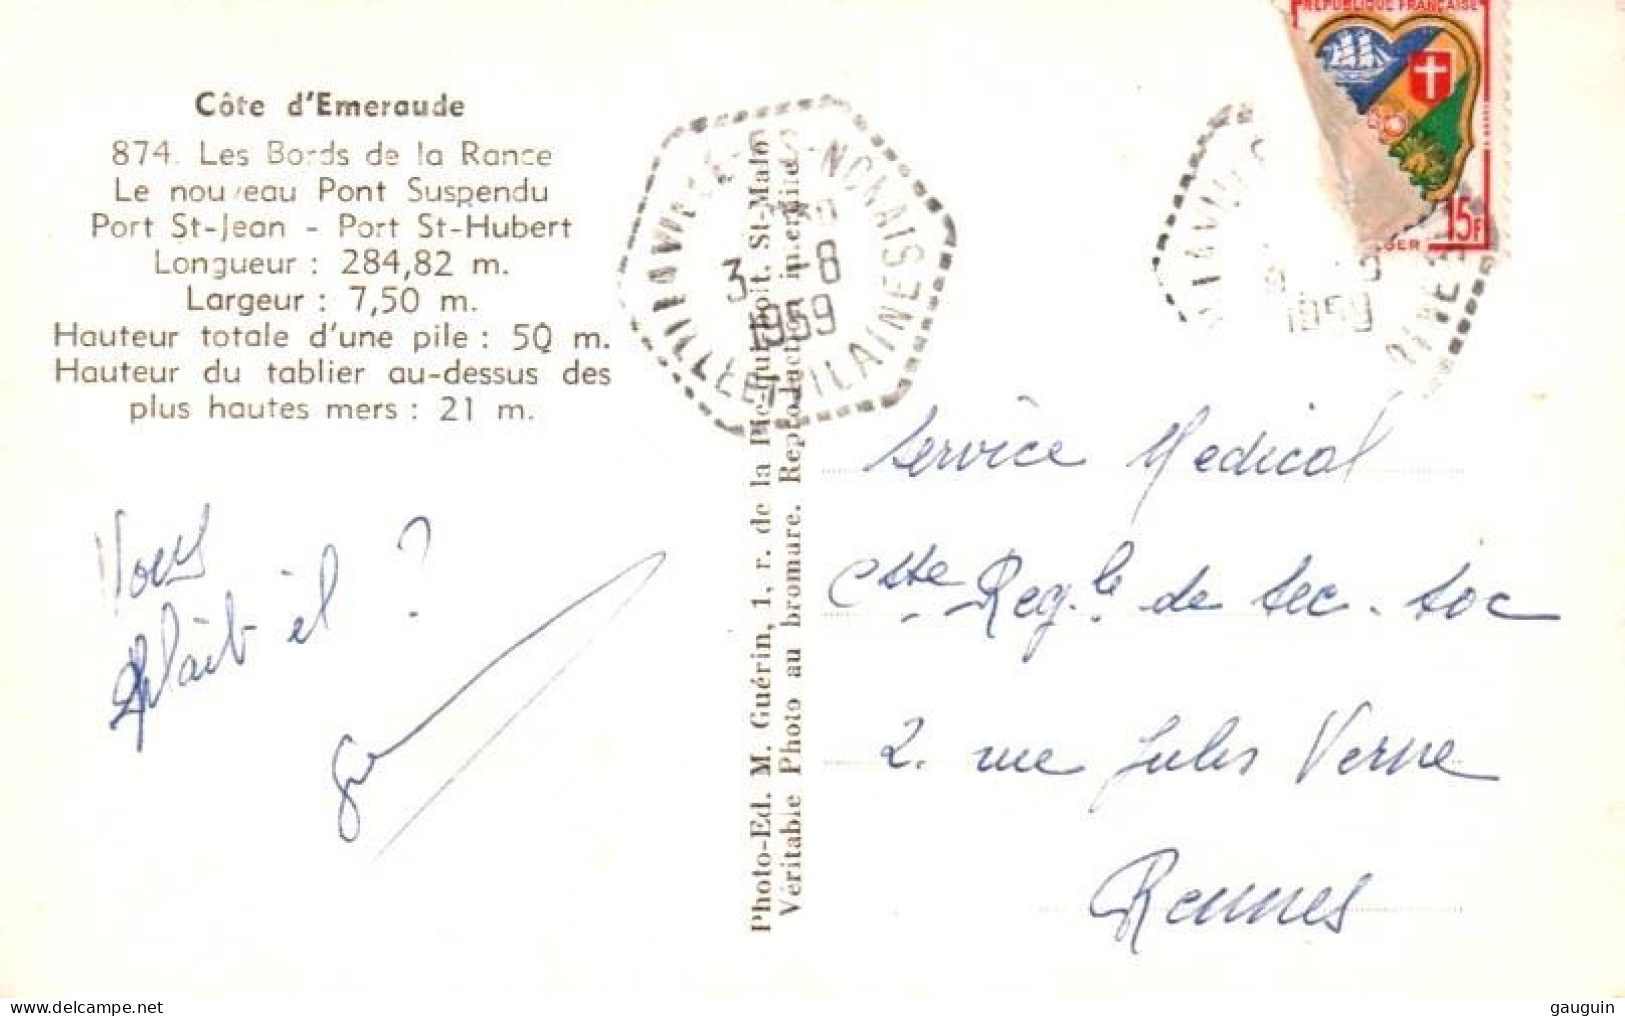 Côte d'Emeraude
874. Les Bords de la Rance
Le nouveau Pont Suspendu
Port St-Jean - Port St-Hubert
Longueur : 284,82 m.
Largeur : 7,50 m.
Hauteur totale d'une pile : 50 m.
Hauteur du tablier au-dessus des
plus hautes mers : 21 m.
Vous
plaît-il ?
Photo-Ed. M. Guérin, 1, r. de la Pie-qui-boit, St-Malo
Véritable Photo au bromure. Reproduction interdite
3 -8
1959
ILLE ET VILAINE
REPUBLIQUE FRANÇAISE
15F
1959
Service Medical
Csse Reg.le de Sec. Soc
2. rue Jules Verne
Rennes
gauguin